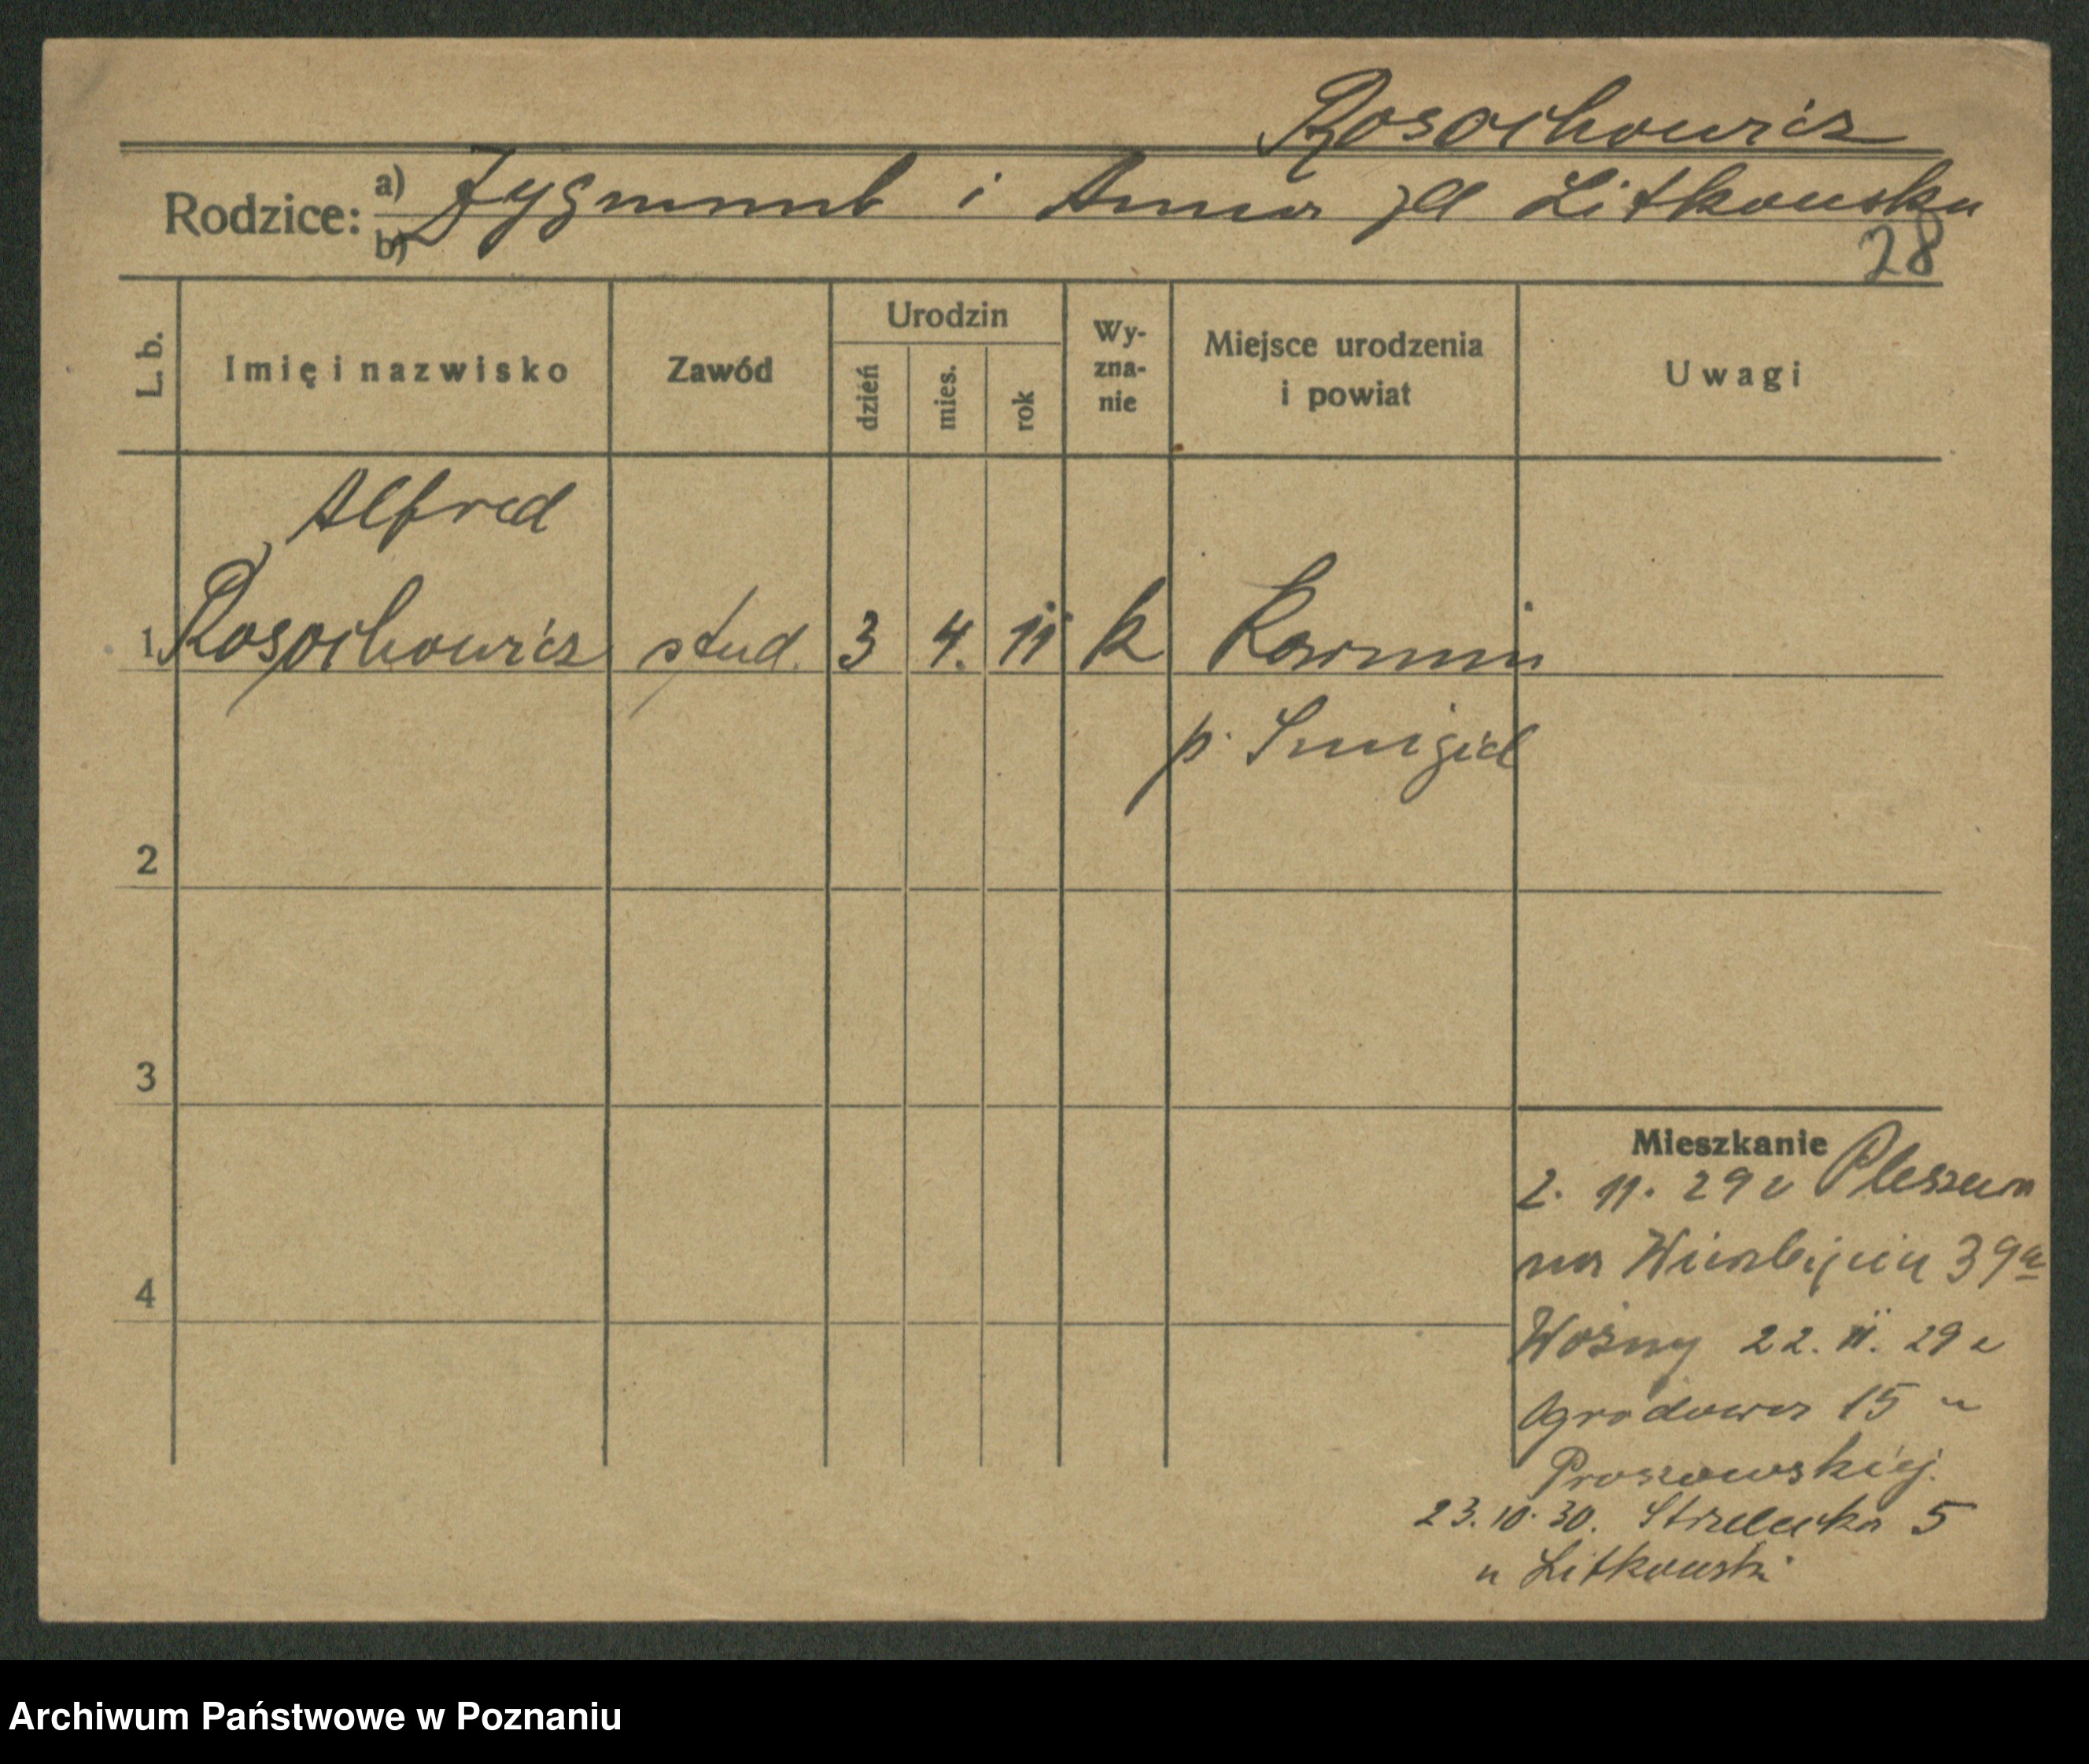 Rosochowicz
Rodzice: a) Zygmunt i Anna Litkowska
b)
28
L. b.
Imię i nazwisko
Zawód
Urodzin
dzień
mies.
rok
Wy-
zna-
nie
Miejsce urodzenia
i powiat
Uwagi
Alfred
1 Rosochowicz stud. 3 4. 11 k Karmin
p. Śmigiel
2
3
4
Mieszkanie
2. 11. 29 z Pleszewa
na 39a
Woźny 22. 29 z
Ogrodowa 15 u
Proszowskiej
23. 10. 30. Strzelecka 5
u Litkowski
Archiwum Państwowe w Poznaniu